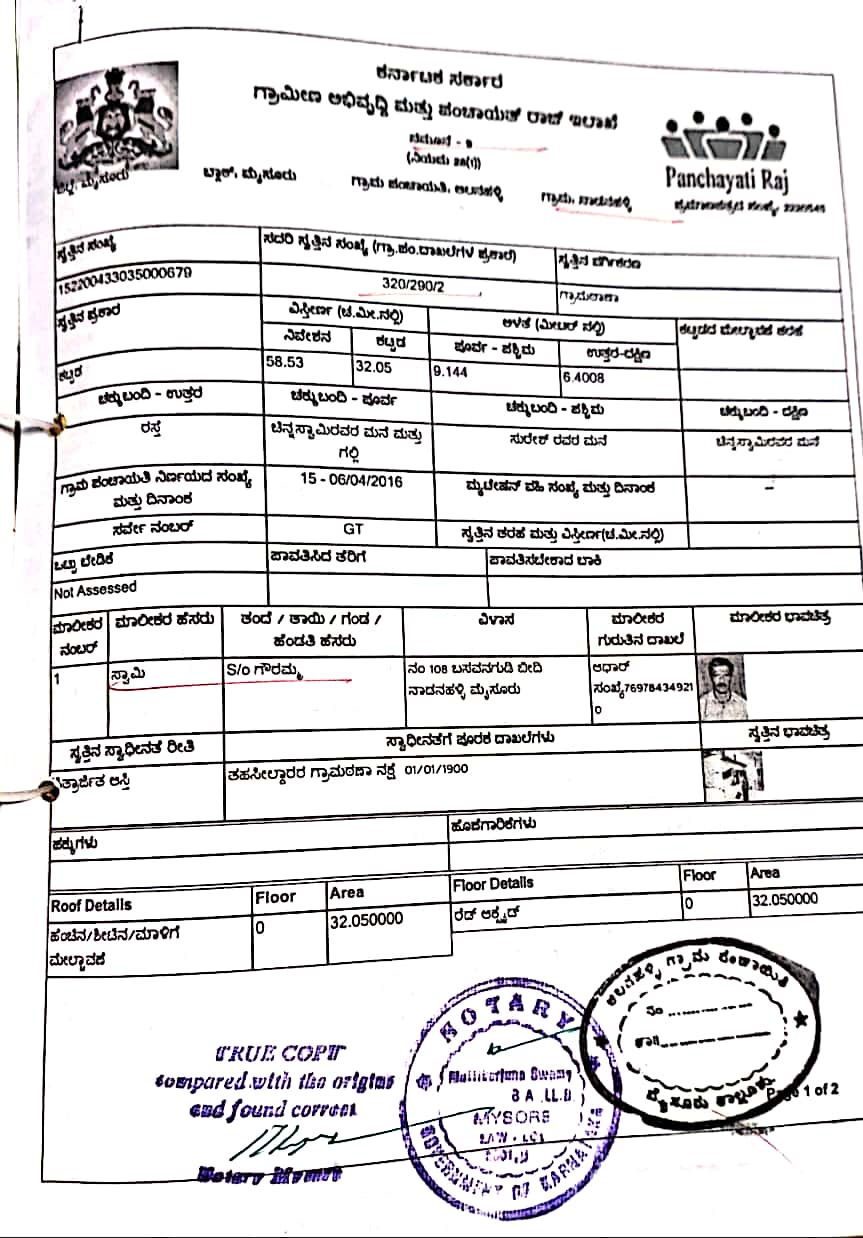 ಕರ್ನಾಟಕ ಸರ್ಕಾರ
ಗ್ರಾಮೀಣ ಅಭಿವೃದ್ಧಿ ಮತ್ತು ಪಂಚಾಯತ್ ರಾಜ್ ಇಲಾಖೆ
ನಮೂನೆ - ೨
(ನಿಯಮ 28(1))
Panchayati Raj
ಜಿಲ್ಲೆ, ಮೈಸೂರು ಬ್ಲಾಕ್, ಮೈಸೂರು ಗ್ರಾಮ ಪಂಚಾಯತಿ, ಆಲನಹಳ್ಳಿ ಗ್ರಾಮ, ನಾಡನಹಳ್ಳಿ
ಸ್ವತ್ತಿನ ಸಂಖ್ಯೆ ಸದರಿ ಸ್ವತ್ತಿನ ಸಂಖ್ಯೆ (ಗ್ರಾ.ಪಂ.ದಾಖಲೆಗಳ ಪ್ರಕಾರ) ಸ್ವತ್ತಿನ ವರ್ಗೀಕರಣ
152200433035000679 320/290/2 ಗ್ರಾಮಠಾಣಾ
ಸ್ವತ್ತಿನ ಪ್ರಕಾರ ವಿಸ್ತೀರ್ಣ (ಚ.ಮೀ.ನಲ್ಲಿ) ಅಳತೆ (ಮೀಟರ್ ನಲ್ಲಿ) ಕಟ್ಟಡದ ಮೇಲ್ಛಾವಣಿ ತರಹೆ
ನಿವೇಶನ ಕಟ್ಟಡ ಪೂರ್ವ - ಪಶ್ಚಿಮ ಉತ್ತರ-ದಕ್ಷಿಣ
ಕಟ್ಟಡ 58.53 32.05 9.144 6.4008
ಚಕ್ಕುಬಂದಿ - ಉತ್ತರ ಚಕ್ಕುಬಂದಿ - ಪೂರ್ವ ಚಕ್ಕುಬಂದಿ - ಪಶ್ಚಿಮ ಚಕ್ಕುಬಂದಿ - ದಕ್ಷಿಣ
ರಸ್ತೆ ಚಿನ್ನಸ್ವಾಮಿರವರ ಮನೆ ಮತ್ತು ಗಲ್ಲಿ ಸುರೇಶ್ ರವರ ಮನೆ ಚಿನ್ನಸ್ವಾಮಿರವರ ಮನೆ
ಗ್ರಾಮ ಪಂಚಾಯತಿ ನಿರ್ಣಯದ ಸಂಖ್ಯೆ ಮತ್ತು ದಿನಾಂಕ 15 - 06/04/2016 ಮ್ಯುಟೇಷನ್ ವಹಿ ಸಂಖ್ಯೆ ಮತ್ತು ದಿನಾಂಕ --
ಸರ್ವೇ ನಂಬರ್ GT ಸ್ವತ್ತಿನ ತರಹೆ ಮತ್ತು ವಿಸ್ತೀರ್ಣ(ಚ.ಮೀ.ನಲ್ಲಿ)
ಒಟ್ಟು ಬೇಡಿಕೆ ಪಾವತಿಸಿದ ತೆರಿಗೆ ಪಾವತಿಸಬೇಕಾದ ಬಾಕಿ
Not Assessed
ಮಾಲೀಕರ ನಂಬರ್ ಮಾಲೀಕರ ಹೆಸರು ತಂದೆ / ತಾಯಿ / ಗಂಡ / ಹೆಂಡತಿ ಹೆಸರು ವಿಳಾಸ ಮಾಲೀಕರ ಗುರುತಿನ ದಾಖಲೆ ಮಾಲೀಕರ ಭಾವಚಿತ್ರ
1 ಸ್ವಾಮಿ S/o ಗೌರಮ್ಮ ನಂ 108 ಬಸವನಗುಡಿ ಬೀದಿ ನಾಡನಹಳ್ಳಿ ಮೈಸೂರು ಆಧಾರ್ ಸಂಖ್ಯೆ76978434921 0
ಸ್ವತ್ತಿನ ಸ್ವಾಧೀನತೆ ರೀತಿ ಸ್ವಾಧೀನತೆಗೆ ಪೂರಕ ದಾಖಲೆಗಳು ಸ್ವತ್ತಿನ ಭಾವಚಿತ್ರ
ಪಿತ್ರಾರ್ಜಿತ ಆಸ್ತಿ ತಹಸೀಲ್ದಾರರ ಗ್ರಾಮಠಾಣಾ ನಕ್ಷೆ 01/01/1900
ಹಕ್ಕುಗಳು ಹೊಣೆಗಾರಿಕೆಗಳು
Roof Details Floor Area Floor Details Floor Area
ಹಂಚಿನ/ಶೀಟಿನ/ಮಾಳಿಗೆ ಮೇಲ್ಛಾವಣಿ 0 32.050000 ರೆಡ್ ಆಕ್ಸೈಡ್ 0 32.050000
ಆಲನಹಳ್ಳಿ ಗ್ರಾಮ ಪಂಚಾಯಿತಿ
ನಂ
ತಾ||
ಮೈಸೂರು ತಾಲ್ಲೂಕು
Page 1 of 2
NOTARY
Mallikarjuna Swamy
B A .LL.B
MYSORE
GOVERNMENT OF KARNATAKA
TRUE COPY
compared with the origina
and found correct
Notary Mysore